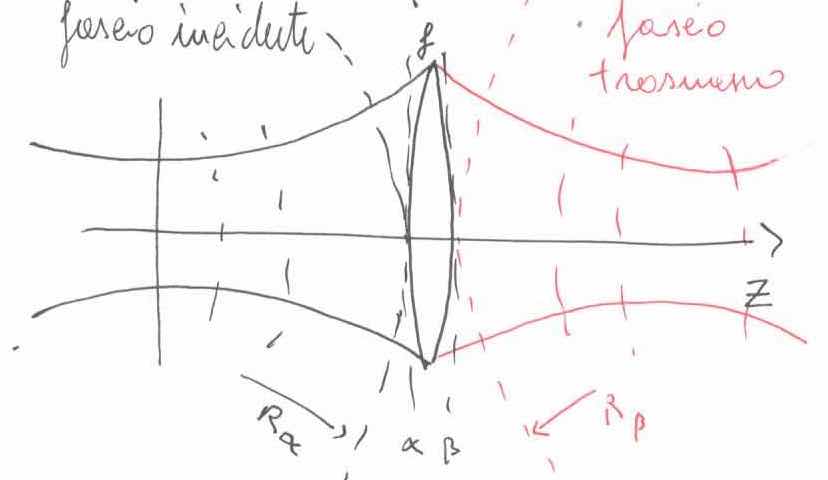 fascio incidente
f
fascio
trasmesso
z
R_α
α β
R_β